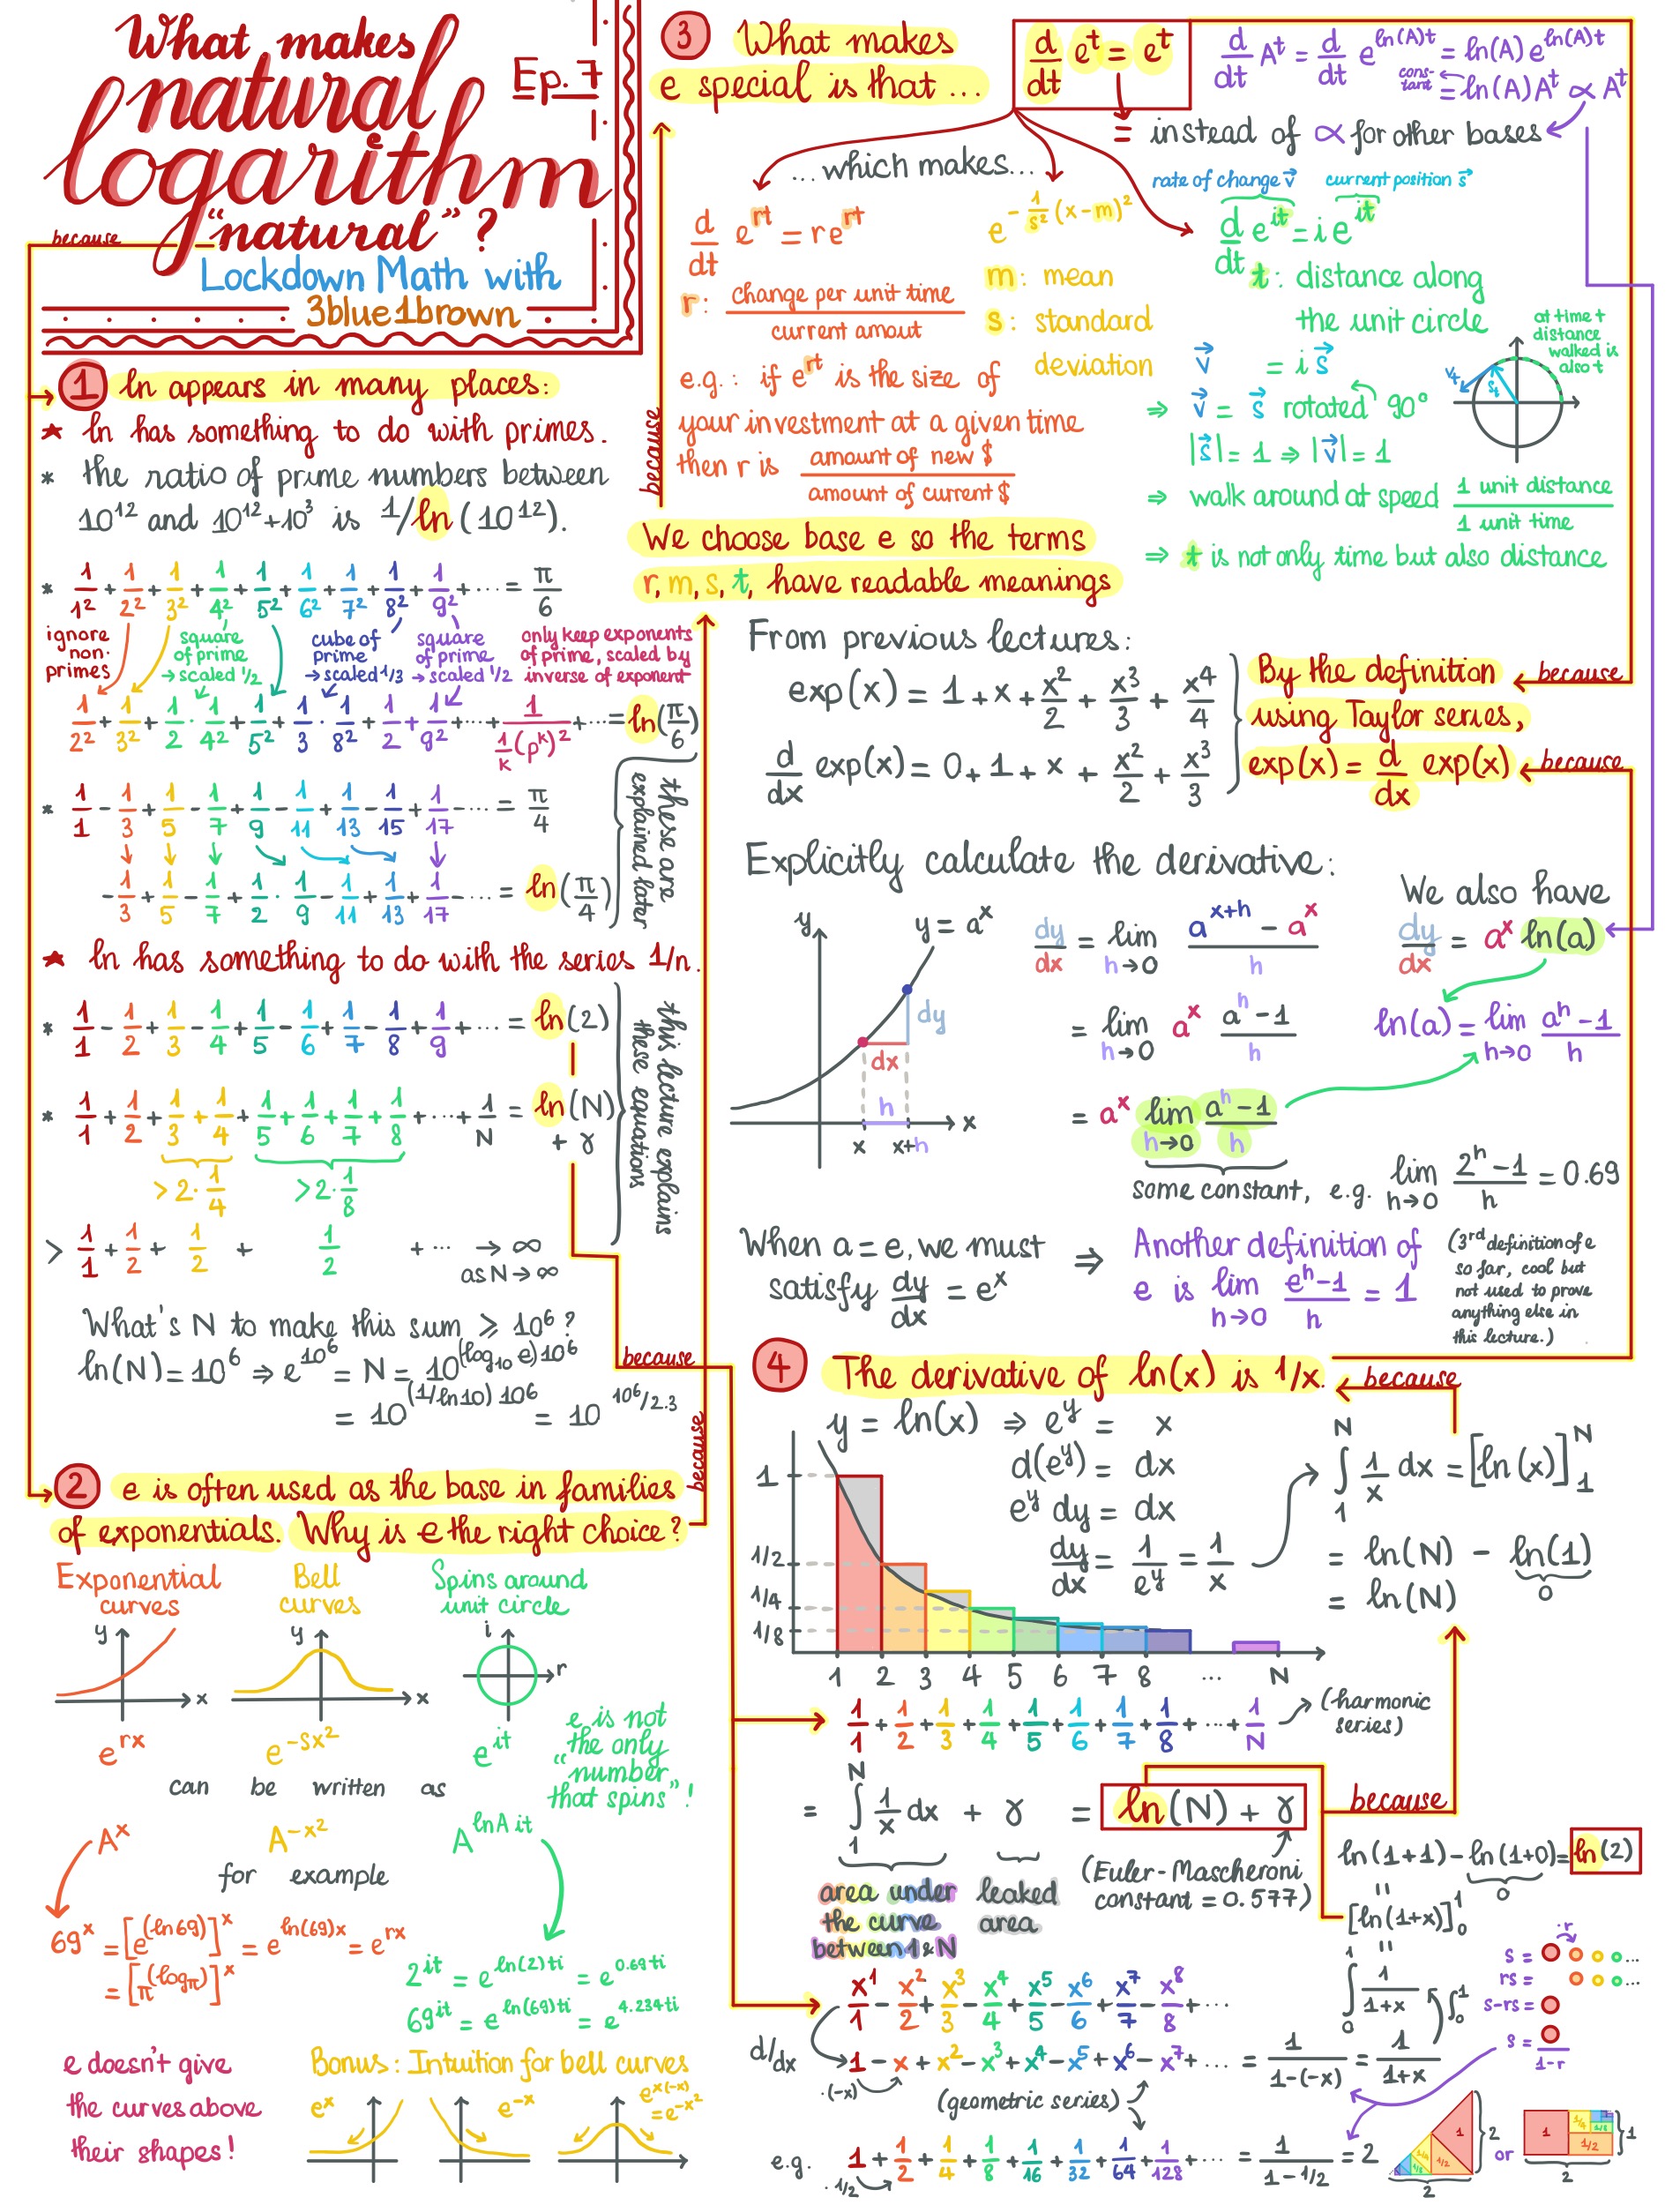 What makes
natural
logarithm
"natural"?
Ep. 7
Lockdown Math with
3blue1brown
because
1 ln appears in many places:
* ln has something to do with primes.
* the ratio of prime numbers between
10¹² and 10¹²+10³ is 1/ln(10¹²).
* 1/1² + 1/2² + 1/3² + 1/4² + 1/5² + 1/6² + 1/7² + 1/8² + 1/9² + ... = π/6
ignore non-primes
square of prime → scaled 1/2
cube of prime → scaled 1/3
square of prime → scaled 1/2
only keep exponents of prime, scaled by inverse of exponent
1/2² + 1/3² + 1/2 · 1/4² + 1/5² + 1/3 · 1/8² + 1/2 + 1/9² + ... + 1/(1/k (pᵏ)²) + ... = ln(π/6)
* 1/1 - 1/3 + 1/5 - 1/7 + 1/9 - 1/11 + 1/13 - 1/15 + 1/17 - ... = π/4
-1/3 + 1/5 - 1/7 + 1/2 · 1/9 - 1/11 + 1/13 + 1/17 - ... = ln(π/4)
these are explained later
* ln has something to do with the series 1/n.
* 1/1 - 1/2 + 1/3 - 1/4 + 1/5 - 1/6 + 1/7 - 1/8 + 1/9 + ... = ln(2)
* 1/1 + 1/2 + 1/3 + 1/4 + 1/5 + 1/6 + 1/7 + 1/8 + ... + 1/N = ln(N) + γ
>2·1/4 >2·1/8
> 1/1 + 1/2 + 1/2 + 1/2 + ... → ∞
as N → ∞
this lecture explains these equations
What's N to make this sum ⩾ 10⁶?
ln(N) = 10⁶ ⇒ e^10⁶ = N = 10^(log₁₀ e)10⁶
= 10^(1/ln10) 10⁶ = 10^10⁶/2.3
because
2 e is often used as the base in families
of exponentials. Why is e the right choice?
because
Exponential curves
Bell curves
Spins around unit circle
y x
y x
i r
e^rx e^-sx² e^it
e is not
the only
"number
that spins"!
can be written as
A^x A^-x² A^lnA it
for example
69^x = [e^(ln69)]^x = e^ln(69)x = e^rx
= [π^(logπ)]^x
2^it = e^ln(2)ti = e^0.69ti
69^it = e^ln(69)ti = e^4.234ti
e doesn't give
the curves above
their shapes!
Bonus: Intuition for bell curves
e^x e^-x e^x(-x) = e^-x²
3 What makes
e special is that ...
d/dt e^t = e^t
d/dt A^t = d/dt e^ln(A)t = ln(A) e^ln(A)t
constant = ln(A)A^t ∝ A^t
= instead of ∝ for other bases
...which makes...
d/dt e^rt = re^rt
r: change per unit time / current amout
e.g.: if e^rt is the size of
your investment at a given time
then r is amount of new $ / amount of current $
e^-1/s² (x-m)²
m: mean
s: standard
deviation
rate of change v⃗ current position s⃗
d/dt e^it = i e^it
t: distance along
the unit circle
at time t distance walked is also t
vₜ sₜ
v⃗ = i s⃗
⇒ v⃗ = s⃗ rotated 90°
|s⃗| = 1 ⇒ |v⃗| = 1
⇒ walk around at speed 1 unit distance / 1 unit time
⇒ t is not only time but also distance
because
We choose base e so the terms
r, m, s, t, have readable meanings
From previous lectures:
exp(x) = 1 + x + x²/2 + x³/3 + x⁴/4
d/dx exp(x) = 0 + 1 + x + x²/2 + x³/3
By the definition
using Taylor series,
exp(x) = d/dx exp(x)
because
because
Explicitly calculate the derivative:
y y = a^x
dy
dx
h
x x+h x
dy/dx = lim h→0 a^x+h - a^x / h
= lim h→0 a^x a^h - 1 / h
= a^x lim h→0 a^h - 1 / h
some constant, e.g. lim h→0 2^h - 1 / h = 0.69
We also have
dy/dx = a^x ln(a)
ln(a) = lim h→0 a^h - 1 / h
When a = e, we must
satisfy dy/dx = e^x
⇒ Another definition of
e is lim h→0 e^h - 1 / h = 1
(3rd definition of e
so far, cool but
not used to prove
anything else in
this lecture.)
4 The derivative of ln(x) is 1/x.
because
y = ln(x) ⇒ e^y = x
d(e^y) = dx
e^y dy = dx
dy/dx = 1/e^y = 1/x
∫₁ᴺ 1/x dx = [ln(x)]₁ᴺ
= ln(N) - ln(1)
0
= ln(N)
1
1/2
1/4
1/8
1 2 3 4 5 6 7 8 ... N
1/1 + 1/2 + 1/3 + 1/4 + 1/5 + 1/6 + 1/7 + 1/8 + ... + 1/N
(harmonic series)
= ∫₁ᴺ 1/x dx + γ = ln(N) + γ
because
area under
the curve
between 1 & N
leaked
area
(Euler-Mascheroni
constant = 0.577)
ln(1+1) - ln(1+0) = ln(2)
0
=
[ln(1+x)]₀¹
=
∫₀¹ 1/1+x
∫₀¹
x¹/1 - x²/2 + x³/3 - x⁴/4 + x⁵/5 - x⁶/6 + x⁷/7 - x⁸/8 + ...
d/dx
1 - x + x² - x³ + x⁴ - x⁵ + x⁶ - x⁷ + ... = 1/1-(-x) = 1/1+x
·(-x)
(geometric series)
·r
s =
rs =
s-rs =
s = 1-r
e.g. 1 + 1/2 + 1/4 + 1/8 + 1/16 + 1/32 + 1/64 + 1/128 + ... = 1/1-1/2 = 2
·1/2
1 1/2 2 2
or
1 1/2 1/4 1/8 1 2